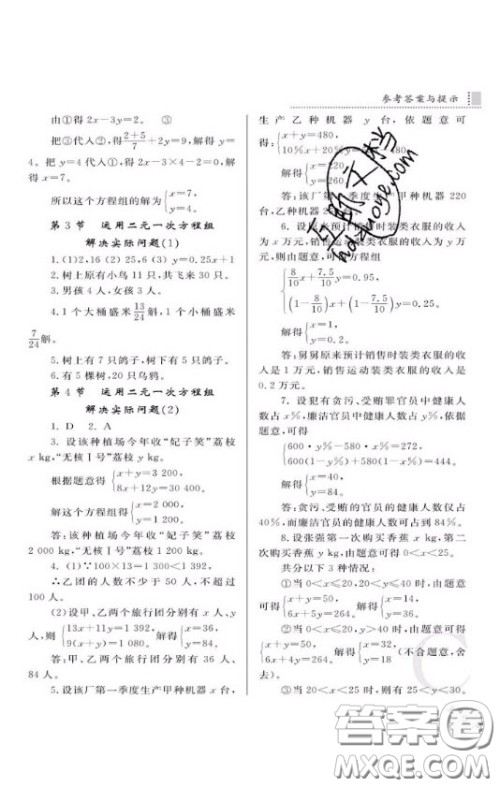 参考答案与提示
由①得2x-3y=2。 ③
把③代入②,得(2+5)/7+2y=9,解得y=
4。把y=4代入①,得2x-3×4-2=0,解
得x=7。
所以这个方程组的解为{x=7, y=4。
第3节 运用二元一次方程组
解决实际问题(1)
1.(1)2,16 (2)25,6 (3)y=0.25x+1
2.树上原有小鸟11只,共飞来30只。
3.男孩4人,女孩3人。
4.1个大桶盛米13/24斛,1个小桶盛米
7/24斛。
5.树上有7只鸽子,树下有5只鸽子。
6.有5棵树,20只乌鸦。
第4节 运用二元一次方程组
解决实际问题(2)
1.D 2.A
3.设该种植场今年收“妃子笑”荔枝
x kg,“无核Ⅰ号”荔枝y kg。
根据题意得{x+y=3 200, 8x+12y=30 400。
解这个方程组得{x=2 000, y=1 200。
答:该种植场今年收“妃子笑”荔枝
2 000 kg,“无核Ⅰ号”荔枝1 200 kg。
4.(1)∵100×13=1 300<1 392,
∴乙团的人数不少于50人,不超过
100人。
(2)设甲、乙两个旅行团分别有x人、y
人。则{13x+11y=1 392, 9(x+y)=1 080。解得{x=36, y=84。
答:甲、乙两个旅行团分别有36人、
84人。
5.设该厂第一季度生产甲种机器x台,
生产乙种机器y台,依题意可
得:{x+y=480, 10%x+20%y
解得 =220 y=260
答:该厂第 季度 甲种机器220
台,乙种机器
6.设 来预计销售时装类衣服的收入
为x万元,销售运动装类衣服的收入为y万
元,则由题意,可 方程组
{8/10x+7.5/10y=0.95, (1-8/10)x+(1-7.5/10)y=0.25。
解得{x=1, y=0.2。
答:舅舅原来预计销售时装类衣服的收
入是1万元,销售运动装类衣服的收入是
0.2万元。
7.设犯有贪污、受贿罪官员中健康人数
占x%,廉洁官员中健康人数占y%,依据
题意,可得
{600·y%-580·x%=272, 600(1-y%)+580(1-x%)=444。
解得{x=40, y=84。
答:贪污、受贿的官员的健康人数仅占
40%,而廉洁官员的健康人数可占到84%。
8.设张强第一次购买香蕉x kg,第二
次购买香蕉y kg,由题意可得0<x<25。
共分以下3种情况:
①当0<x≤20,20<y≤40时,由题意
可得{x+y=50, 6x+5y=264。解得{x=14, y=36。
②当0<x≤20,y>40时,由题意可得
{x+y=50, 6x+4y=264。解得{x=32, y=18(不合题意,舍
去)。
③当20<x<25时,则25<y<30,由题
答案圈